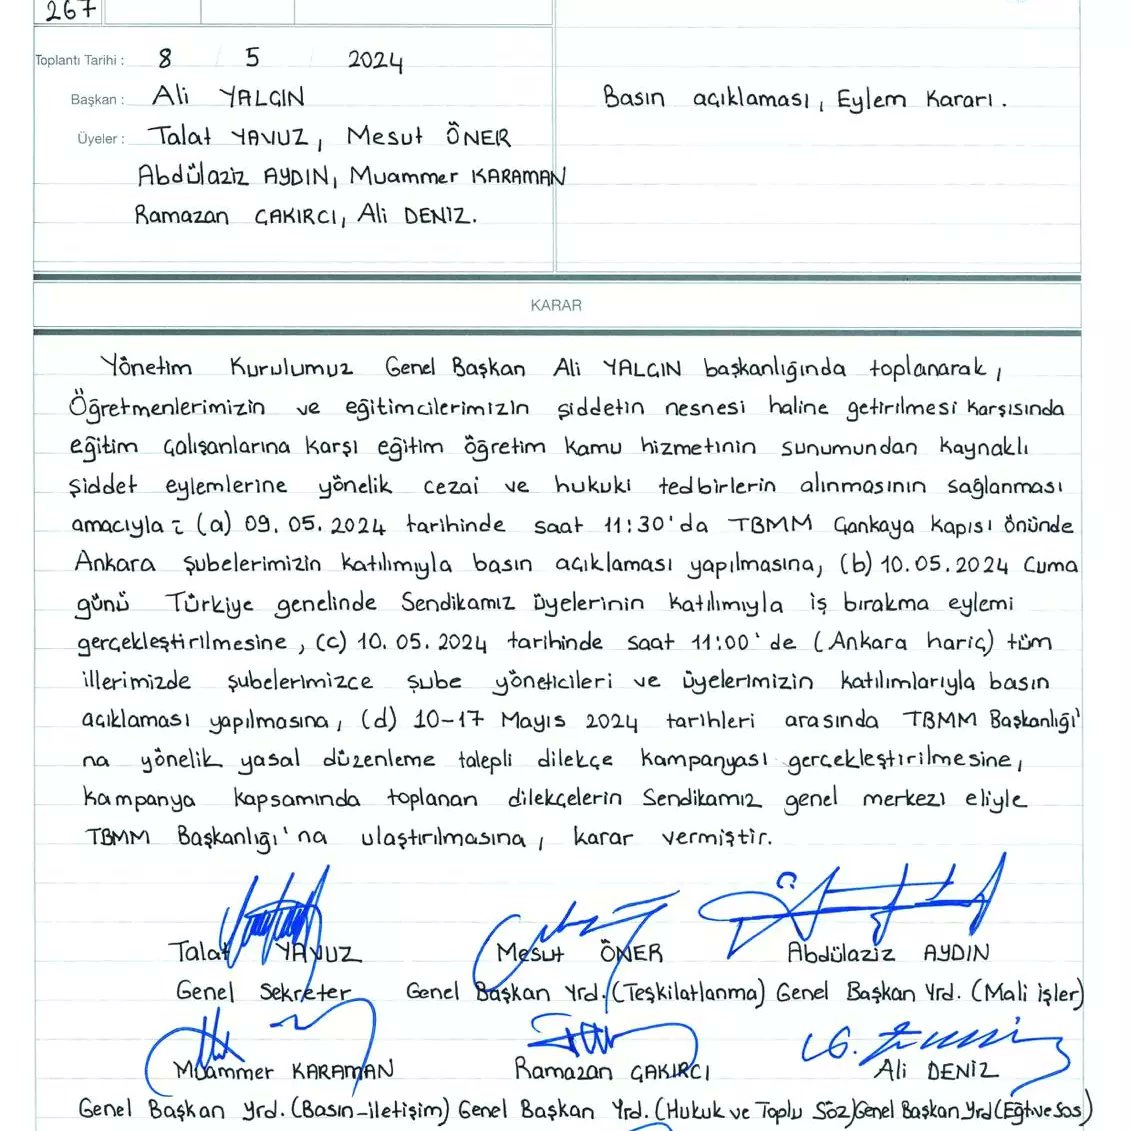 267
Toplantı Tarihi : 8 5 2024
Başkan : Ali YALÇIN
Basın açıklaması, Eylem Kararı.
Üyeler : Talat YAVUZ, Mesut ÖNER
Abdülaziz AYDIN, Muammer KARAMAN
Ramazan ÇAKIRCI, Ali DENİZ.
KARAR
Yönetim Kurulumuz Genel Başkan Ali YALÇIN başkanlığında toplanarak,
Öğretmenlerimizin ve eğitimcilerimizin şiddetin nesnesi haline getirilmesi karşısında
eğitim çalışanlarına karşı eğitim öğretim kamu hizmetinin sunumundan kaynaklı
şiddet eylemlerine yönelik cezai ve hukuki tedbirlerin alınmasının sağlanması
amacıyla ; (a) 09.05.2024 tarihinde saat 11:30'da TBMM Çankaya Kapısı önünde
Ankara şubelerimizin katılımıyla basın açıklaması yapılmasına, (b) 10.05.2024 Cuma
günü Türkiye genelinde Sendikamız üyelerinin katılımıyla iş bırakma eylemi
gerçekleştirilmesine, (c) 10.05.2024 tarihinde saat 11:00'de (Ankara hariç) tüm
illerimizde şubelerimizce şube yöneticileri ve üyelerimizin katılımlarıyla basın
açıklaması yapılmasına, (d) 10-17 Mayıs 2024 tarihleri arasında TBMM Başkanlığı'
na yönelik yasal düzenleme talepli dilekçe kampanyası gerçekleştirilmesine,
kampanya kapsamında toplanan dilekçelerin Sendikamız genel merkezi eliyle
TBMM Başkanlığı'na ulaştırılmasına, karar vermiştir.
Talat YAVUZ Mesut ÖNER Abdülaziz AYDIN
Genel Sekreter Genel Başkan Yrd. (Teşkilatlanma) Genel Başkan Yrd. (Mali işler)
Muammer KARAMAN Ramazan ÇAKIRCI Ali DENİZ
Genel Başkan Yrd. (Basın-iletişim) Genel Başkan Yrd. (Hukuk ve Toplu Söz) Genel Başkan Yrd (Eğt ve Sos)